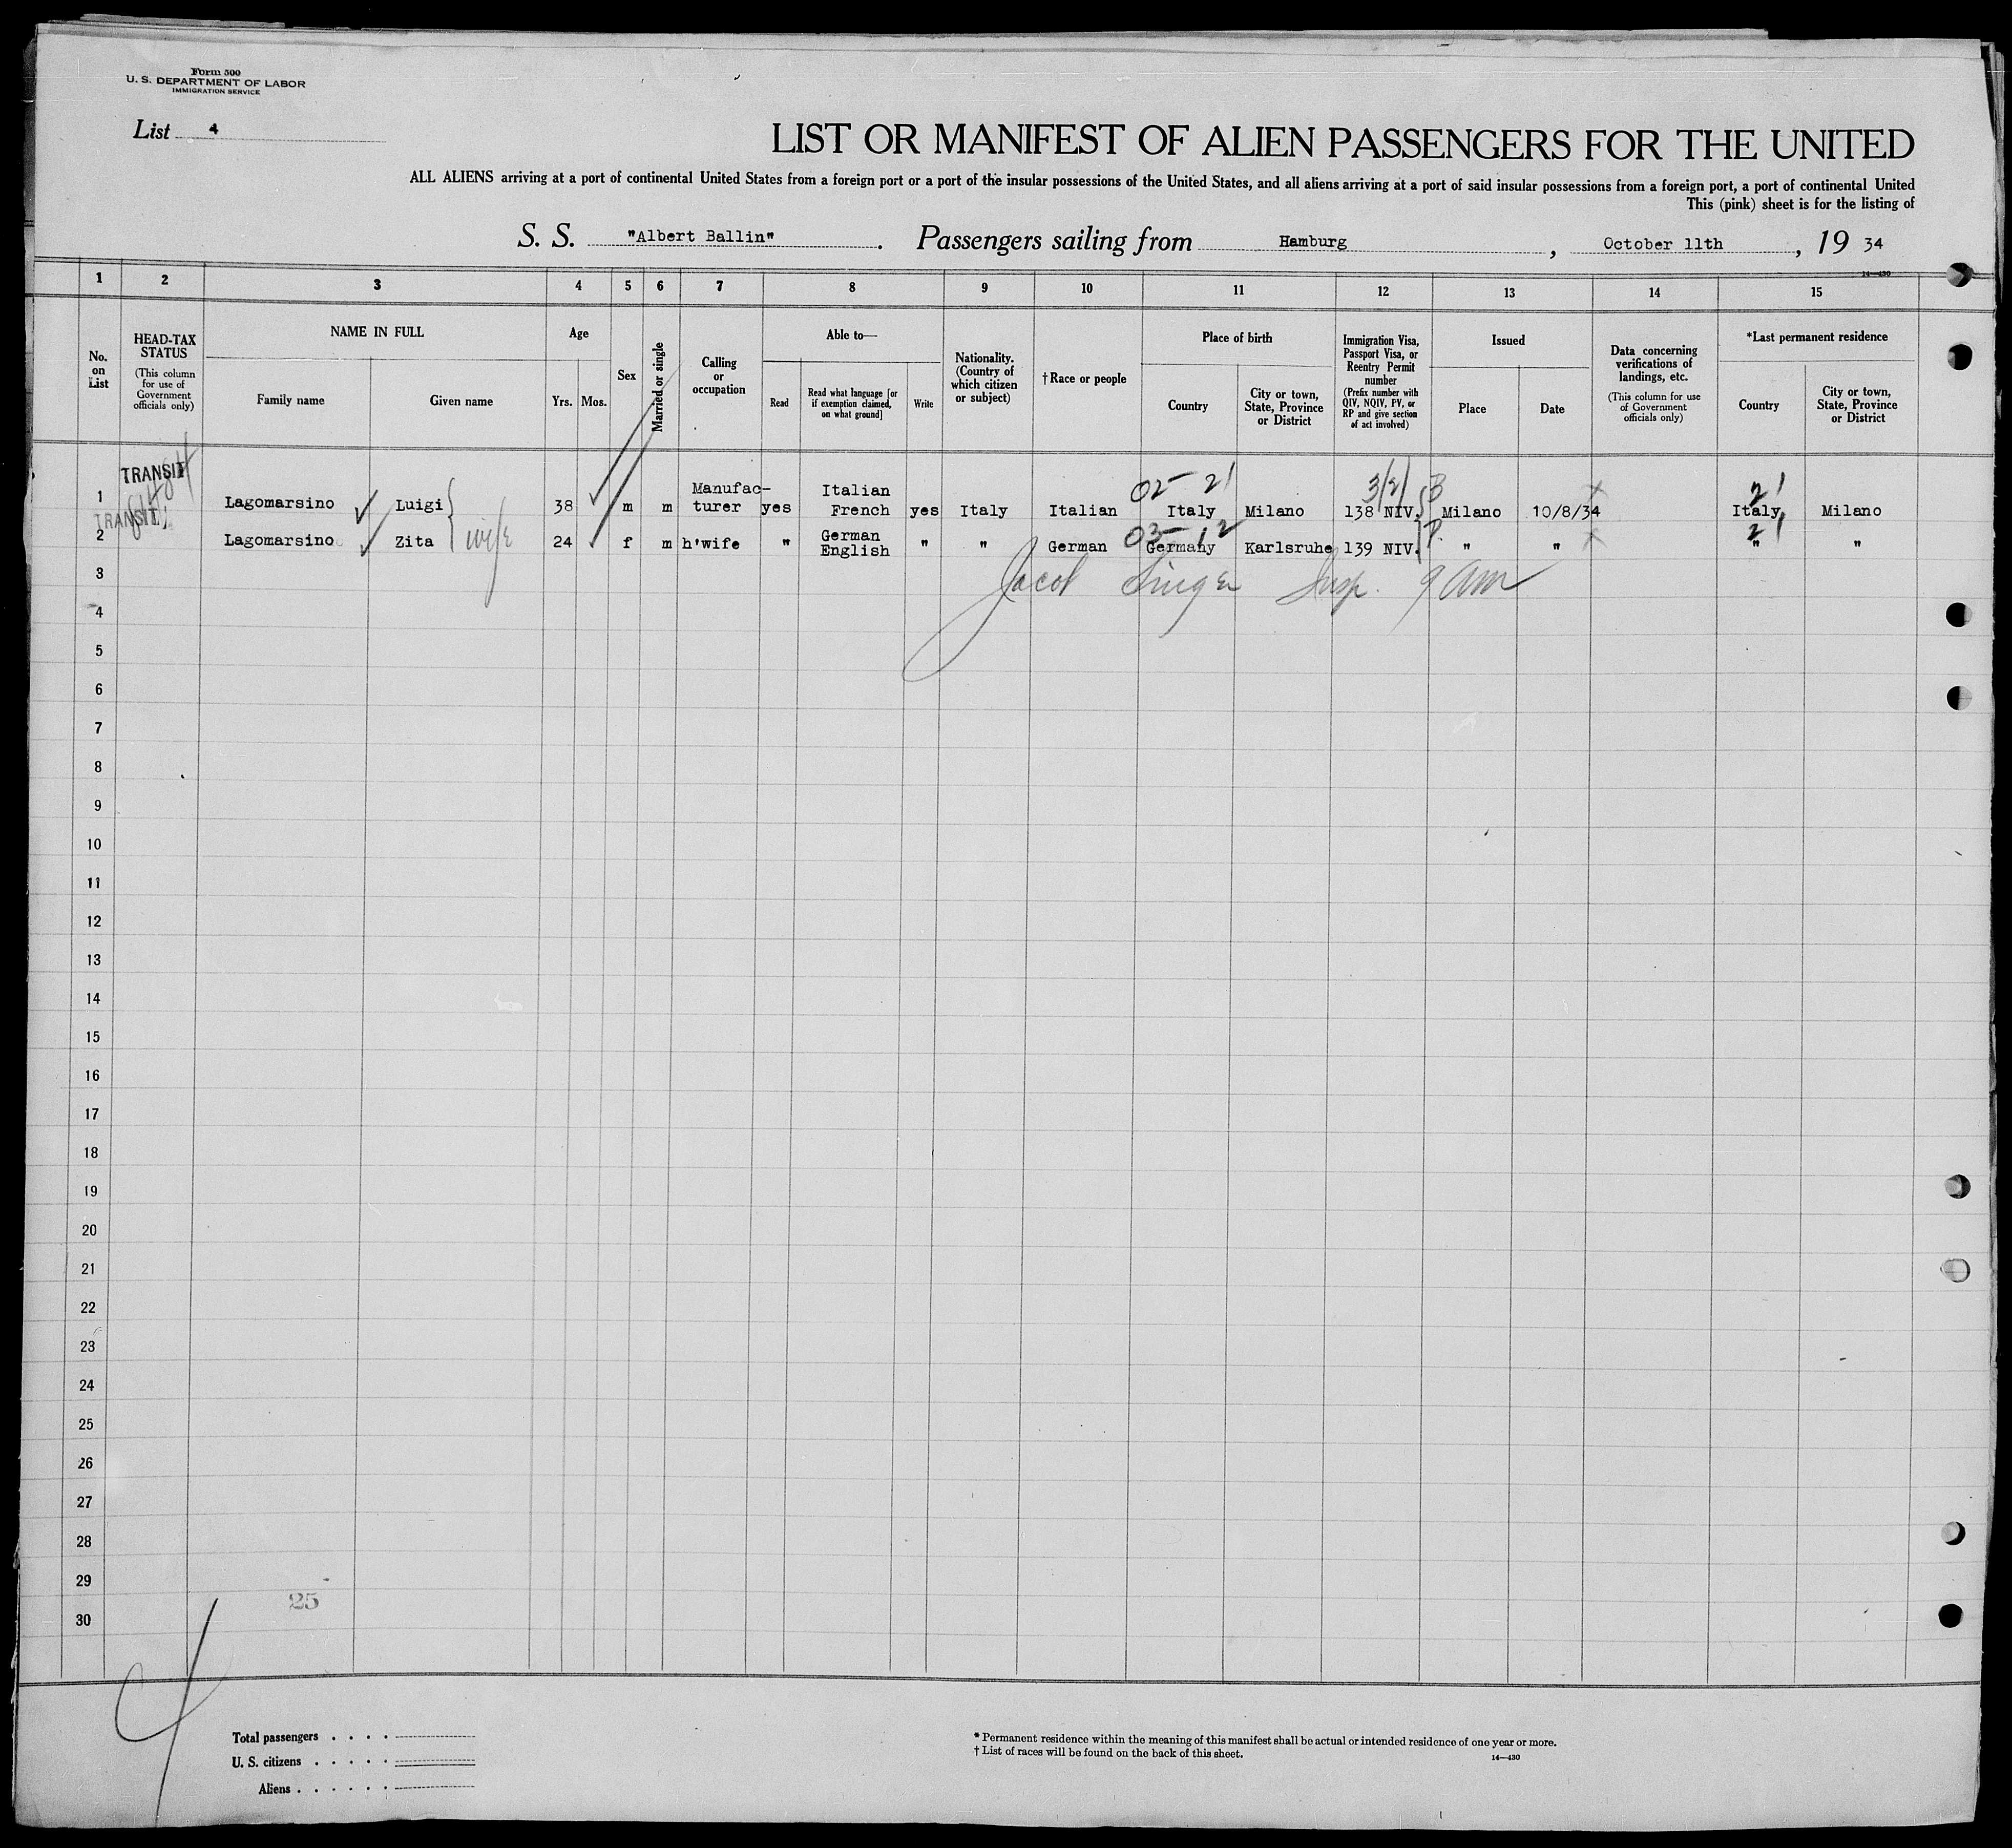 Form 500
U. S. DEPARTMENT OF LABOR
IMMIGRATION SERVICE
List 4
LIST OR MANIFEST OF ALIEN PASSENGERS FOR THE UNITED
ALL ALIENS arriving at a port of continental United States from a foreign port or a port of the insular possessions of the United States, and all aliens arriving at a port of said insular possessions from a foreign port, a port of continental United
This (pink) sheet is for the listing of
S. S. "Albert Ballin". Passengers sailing from Hamburg, October 11th, 19 34
14—430
1 2 3 4 5 6 7 8 9 10 11 12 13 14 15
No. on List
HEAD-TAX STATUS
(This column for use of Government officials only)
NAME IN FULL
Family name
Given name
Age
Yrs.
Mos.
Sex
Married or single
Calling or occupation
Able to—
Read
Read what language [or if exemption claimed, on what ground]
Write
Nationality. (Country of which citizen or subject)
† Race or people
Place of birth
Country
City or town, State, Province or District
Immigration Visa, Passport Visa, or Reentry Permit number
(Prefix number with QIV, NQIV, PV, or RP and give section of act involved)
Issued
Place
Date
Data concerning verifications of landings, etc.
(This column for use of Government officials only)
*Last permanent residence
Country
City or town, State, Province or District
TRANSIT
02- 21 3/2/ B 21
1 Lagomarsino Luigi 38 m m Manufac-turer yes Italian French yes Italy Italian Italy Milano 138 NIV. Milano 10/8/34 Italy Milano
TRANSIT
03- 12 P. 21
2 Lagomarsino Zita wife 24 f m h'wife " German English " " German Germany Karlsruhe 139 NIV. " " " "
3 Jacob Singer Insp. 9 am
4
5
6
7
8
9
10
11
12
13
14
15
16
17
18
19
20
21
22
23
24
25
26
27
28
29
25
30
Total passengers . . . .
U. S. citizens . . . . .
Aliens . . . . . .
* Permanent residence within the meaning of this manifest shall be actual or intended residence of one year or more.
† List of races will be found on the back of this sheet.
14—430